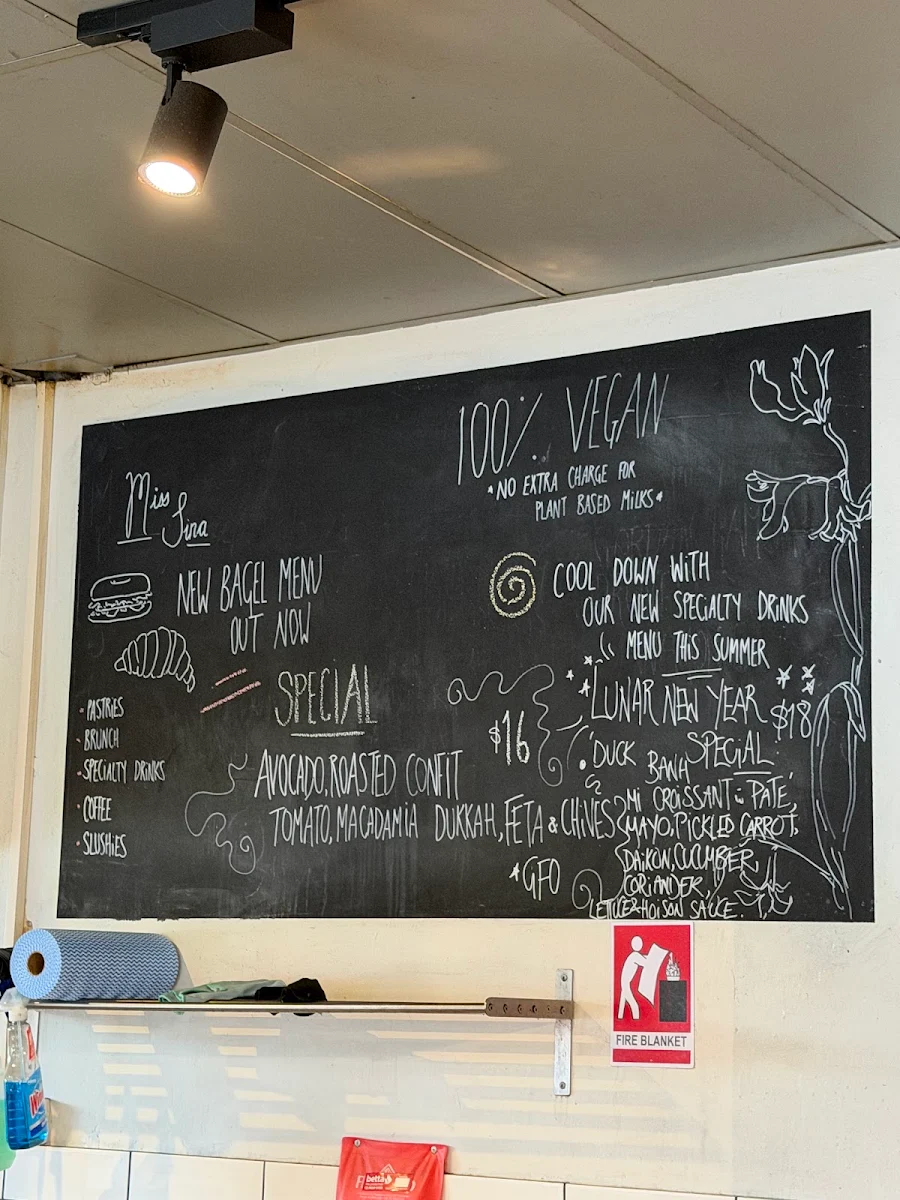 100% VEGAN
*NO EXTRA CHARGE FOR
PLANT BASED MILKS*
Miss
Sina
NEW BAGEL MENU
OUT NOW
• PASTRIES
• BRUNCH
• SPECIALTY DRINKS
• COFFEE
• SLUSHIES
SPECIAL
$16
AVOCADO, ROASTED CONFIT
TOMATO, MACADAMIA DUKKAH, FETA & CHIVES
*GFO
COOL DOWN WITH
OUR NEW SPECIALTY DRINKS
MENU THIS SUMMER
LUNAR NEW YEAR $18
SPECIAL
• 'DUCK BANH
MI CROISSANT: PATE,
MAYO, PICKLED CARROT,
DAIKON, CUCUMBER,
CORIANDER,
HOISON SAUCE.
FIRE BLANKET
betta